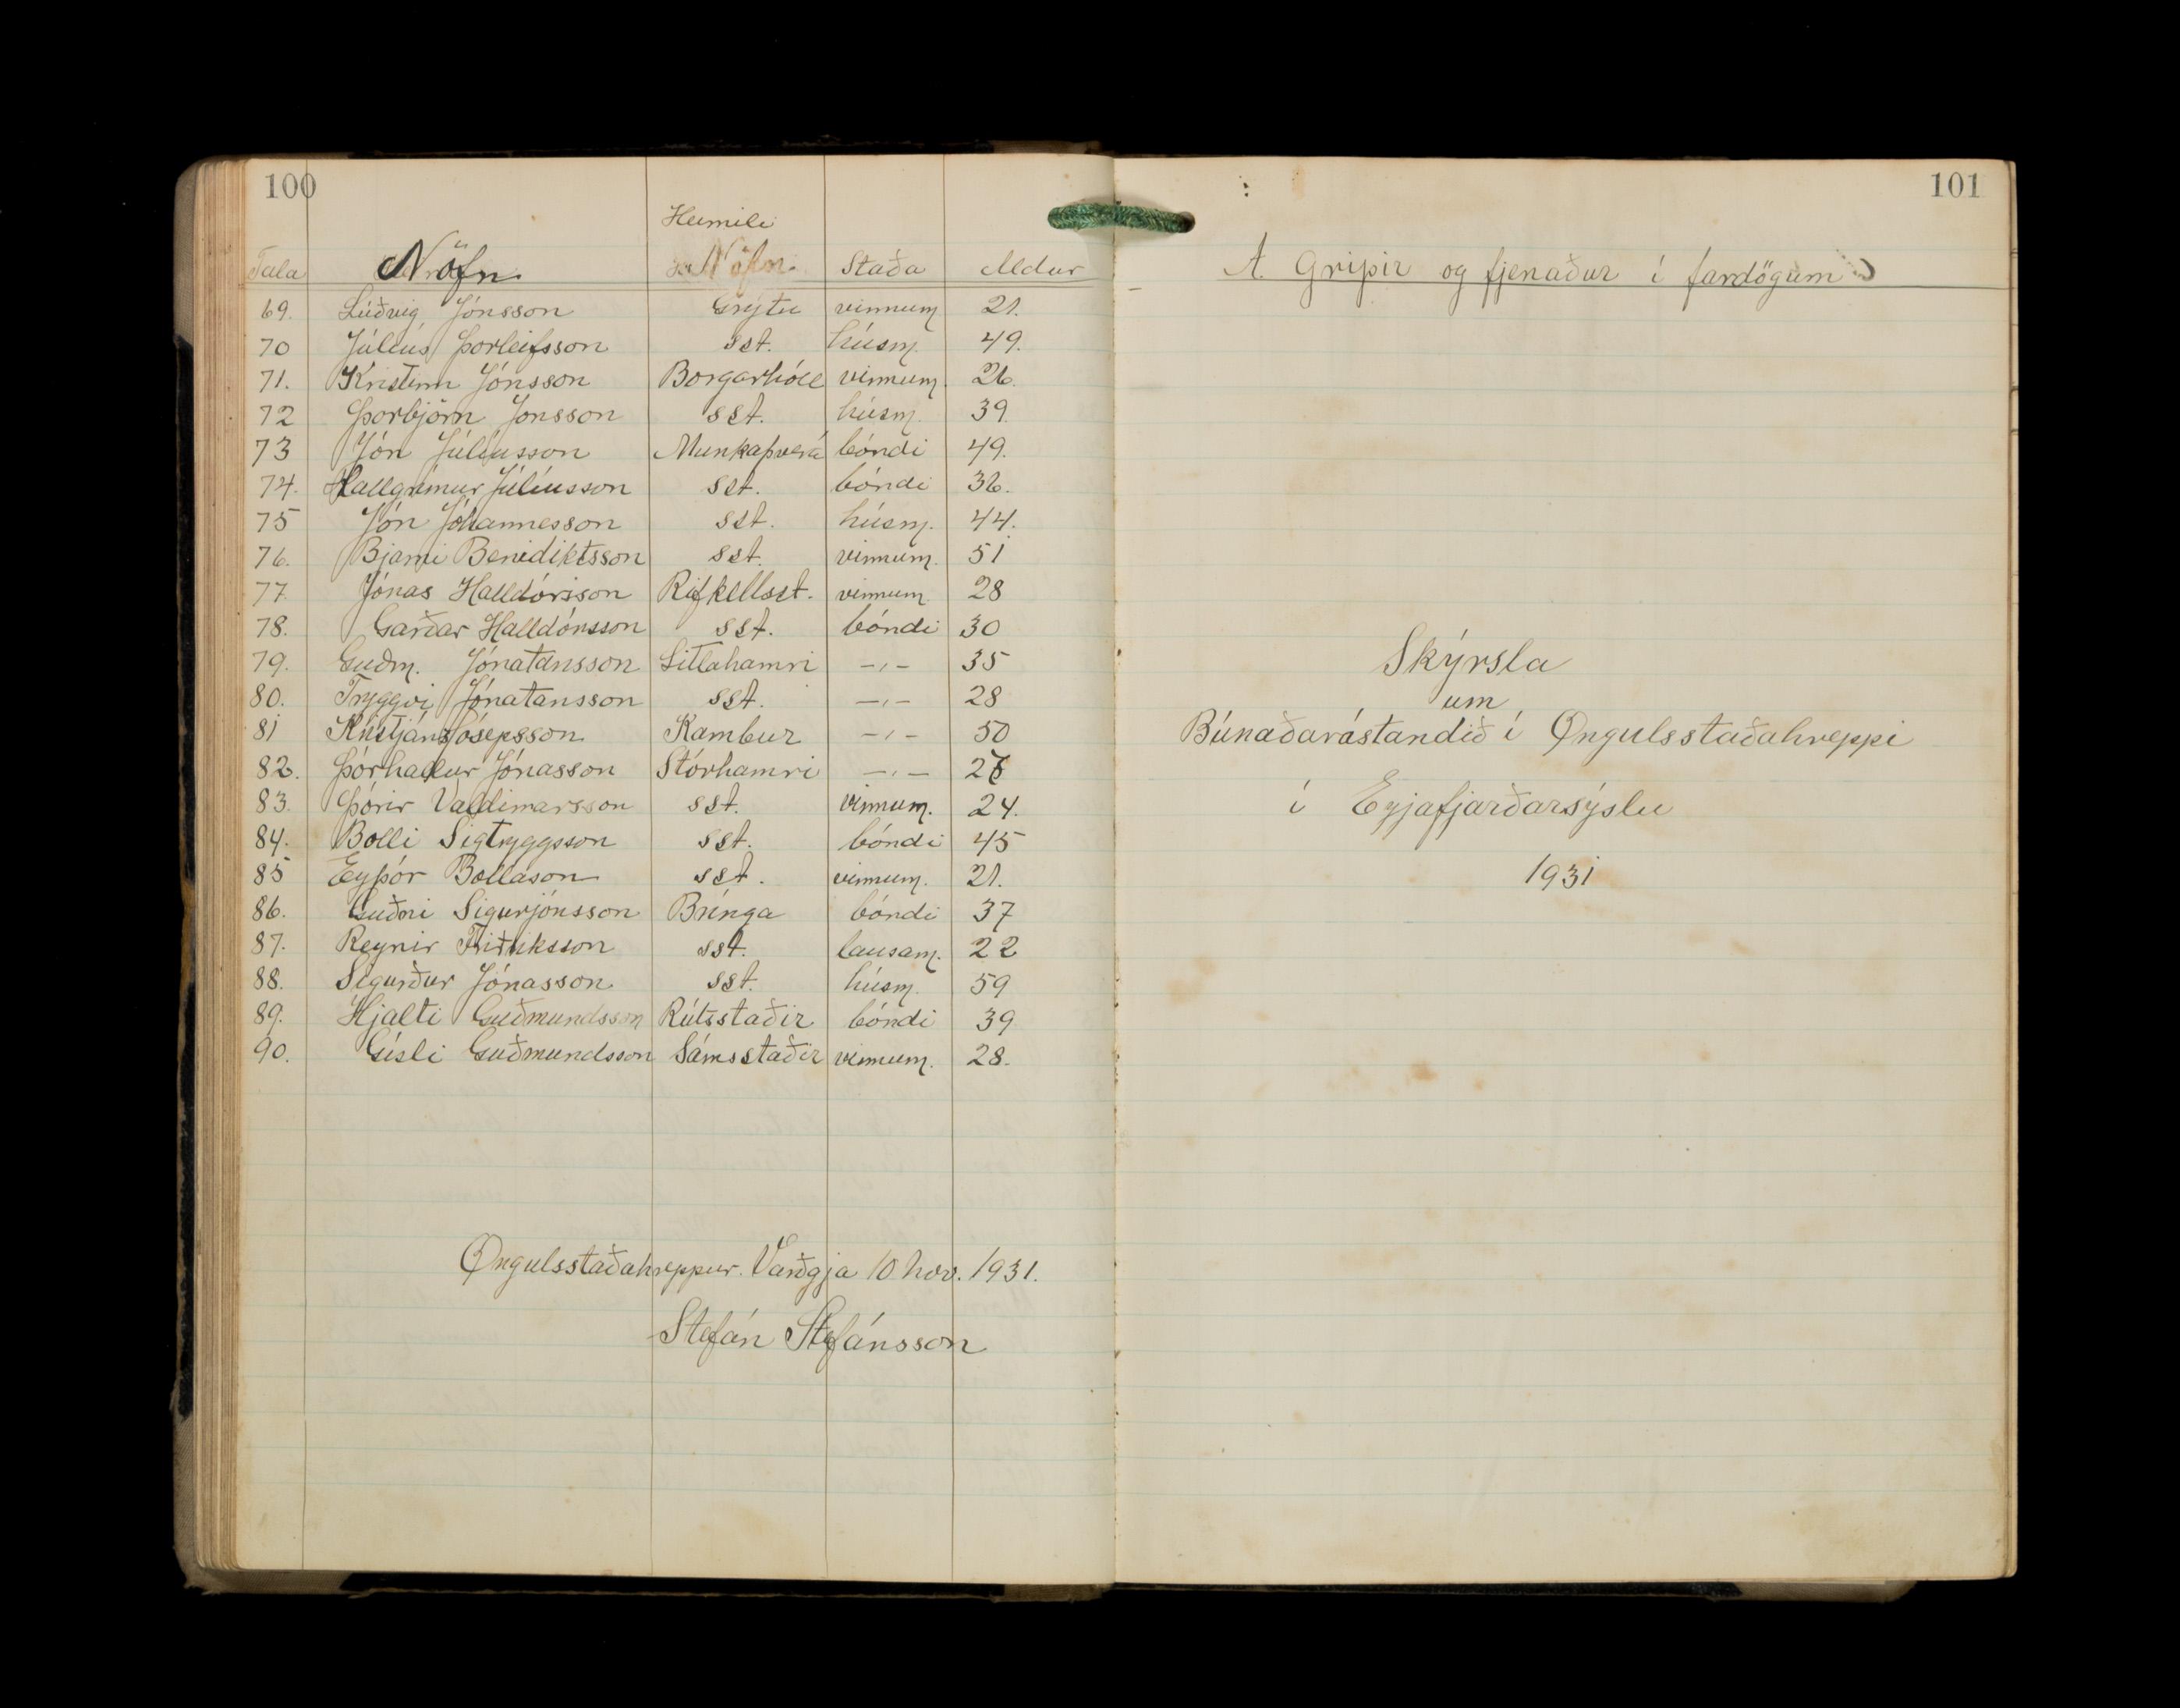 100
Heimili
Tala Nöfn Nöfn Staða Aldur
69. Lúðvig Jónsson Grýtu vinnum 21.
70 Júlíus Þorleifsson sst. húsm. 49.
71. Kristinn Jónsson Borgarhóll vinnum. 26.
72 Þorbjörn Jónsson sst. húsm. 39
73 Jón Júlíusson Munkaþverá bóndi 49.
74. Hallgrímur Júlíusson sst. bóndi 36.
75 Jón Jóhannesson sst. húsm. 44.
76. Bjarni Benediktsson sst. vinnum. 51
77 Jónas Halldórsson Rifkellsst. vinnum. 28
78. Garðar Halldórsson sst. bóndi 30
79. Guðm. Jónatansson Litlahamri -,- 35
80. Tryggvi Jónatansson sst. -,- 28
81 Kristján Jósepsson Kambur -,- 50
82. Þórhallur Jónasson Stórhamri -,-
83. Þórir Valdimarsson sst. vinnum. 24.
84. Bolli Sigtryggsson sst. bóndi 45
85 Eyþór Bollason sst. vinnum. 21.
86. Guðni Sigurjónsson Bringa bóndi 37
87. Reynir Friðriksson sst. lausam. 22
88. Sigurður Jónasson sst. húsm. 59
89. Hjalti Guðmundsson Rútsstaðir bóndi 39
90. Gísli Guðmundsson Sámsstaðir vinnum. 28.
Øngulsstaðahreppur. Varðgja 10 nov. 1931.
Stefán Stefánsson
101
A. Gripir og fjenaður í fardögum
Skýrsla
um
Búnaðarástandið í Øngulsstaðahreppi
í Eyjafjarðarsýslu
1931